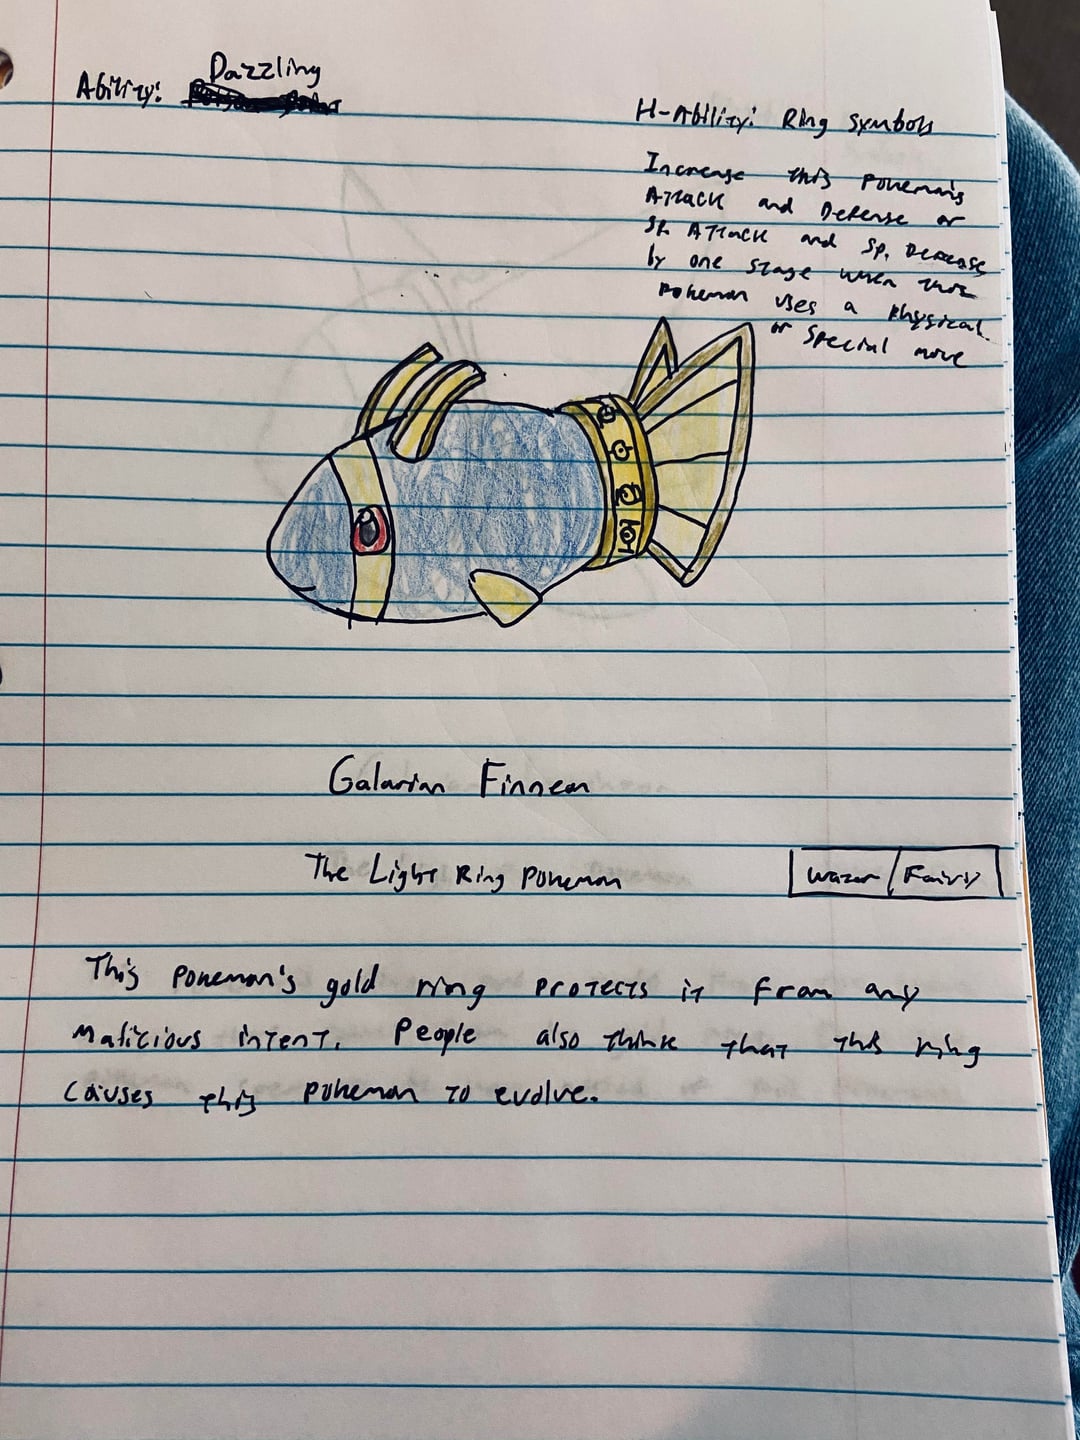 Dazzling
Ability:
H-Ability: Ring Symbols
Increase this Pokemon's
Attack and Defense or
Sp. Attack and Sp. Defense
by one stage when this
Pokemon uses a Physical
or Special move
Galarian Finneon
The Light Ring Pokemon
Water Fairy
This Pokemon's gold ring protects it from any
malicious intent. People also think that this ring
causes this Pokemon to evolve.